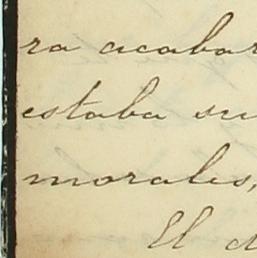 ra acabar
estaba su
morales,
El d